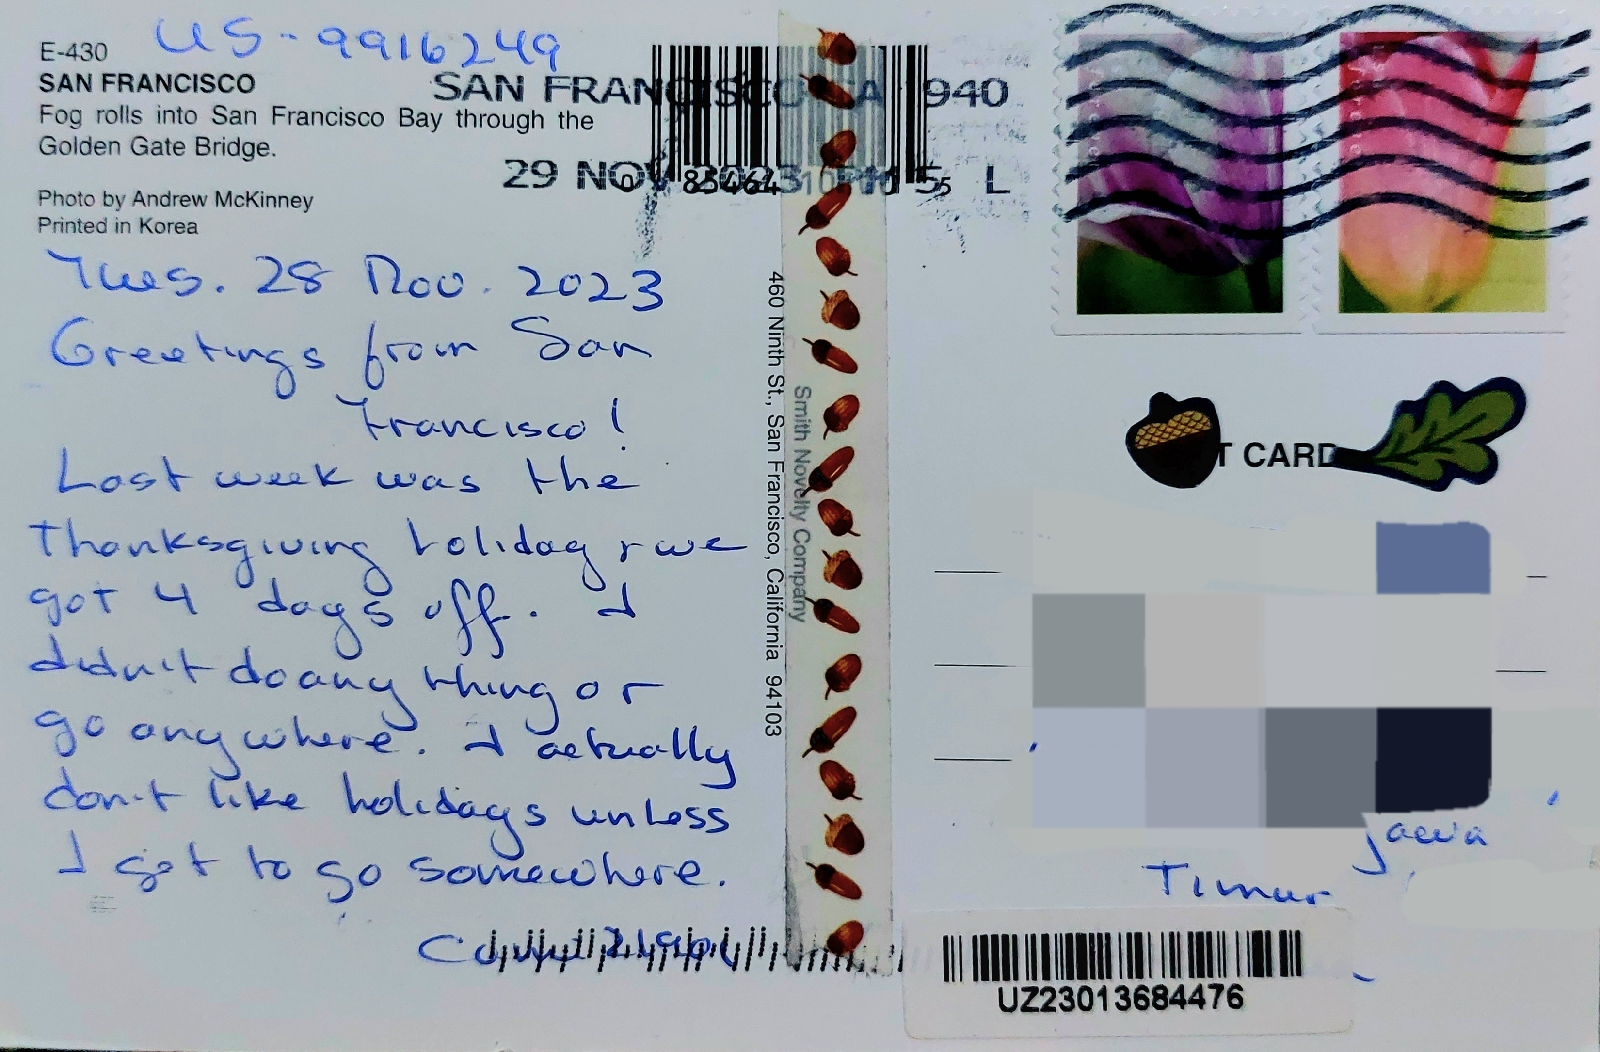 US-9916249
E-430
SAN FRANCISCO
Fog rolls into San Francisco Bay through the
Golden Gate Bridge.
Photo by Andrew McKinney
Printed in Korea
SAN FRANCISCO CA 940
29 NOV 2023 PM 5 L
Tues. 28 Nov. 2023
Greetings from San
Francisco!
Last week was the
Thanksgiving holiday & we
got 4 days off. I
didn't do any thing or
go anywhere. I actually
don't like holidays unless
I get to go somewhere.
Smith Novelty Company
460 Ninth St., San Francisco, California 94103
T CARD
Jawa
Timur
UZ23013684476